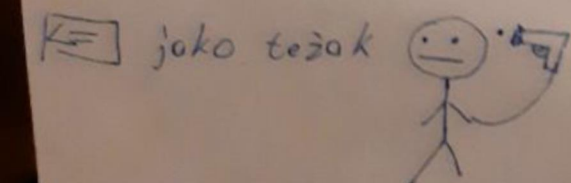 jako težak